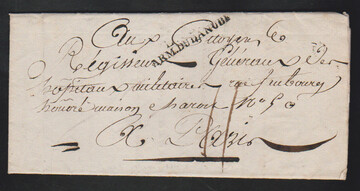 Aux Citoyens
ARM. DU DANUBE
Régisseurs Généraux des
hopitaux militaires rue faubourg
honoré maison
A Paris